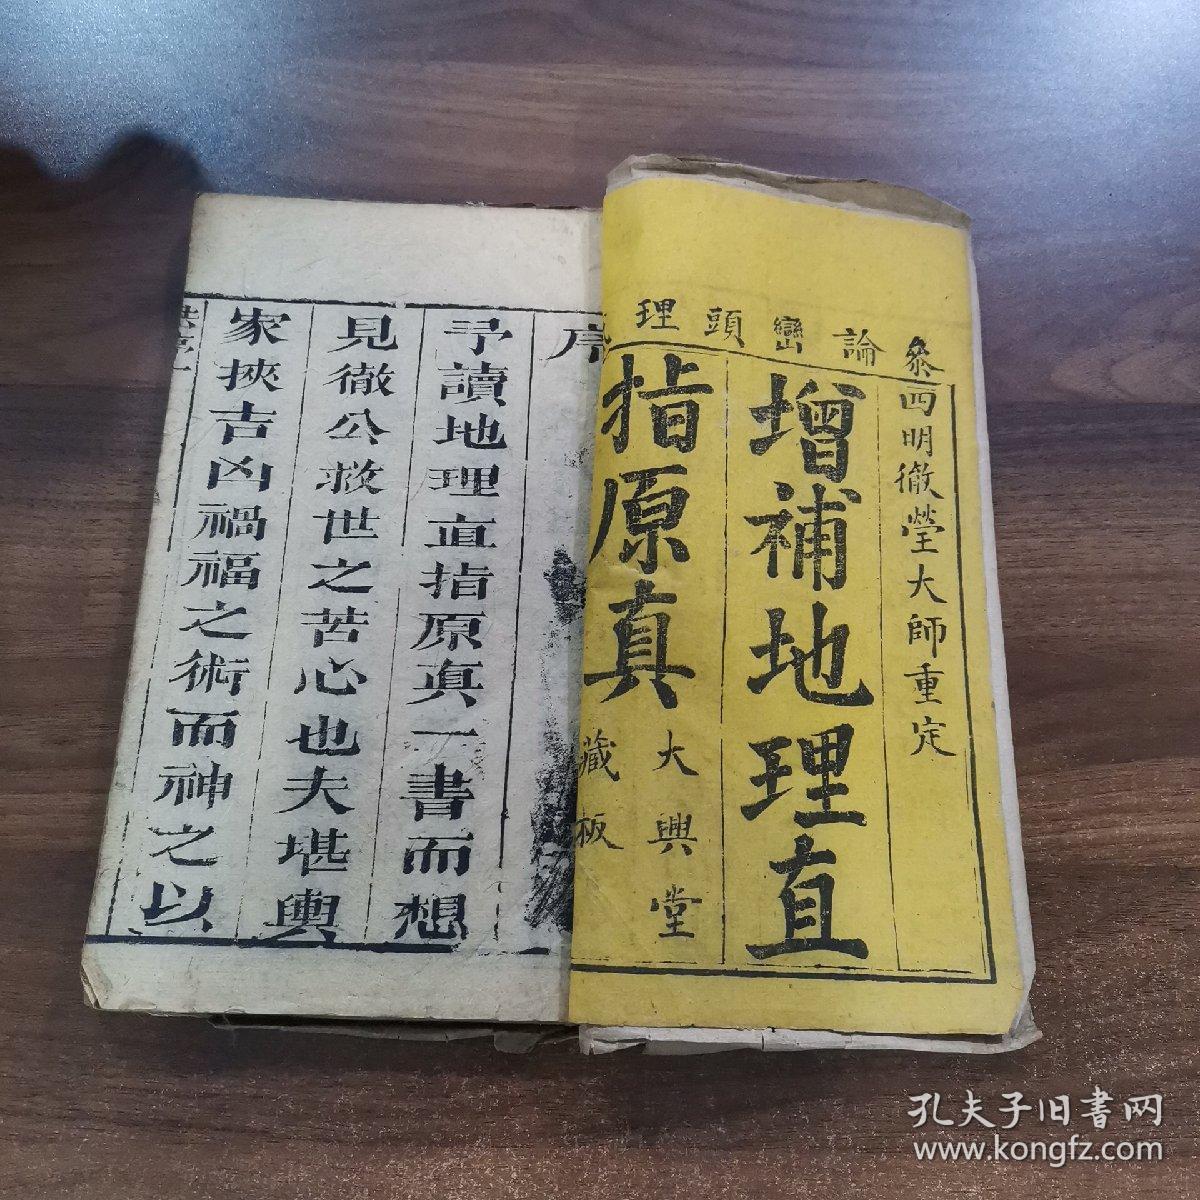 參論巒頭理
四明徹瑩大師重定
增補地理直
指原真
大興堂
藏板
序
予讀地理直指原真一書而想
見徹公救世之苦心也夫堪輿
家挾吉凶禍福之術而神之以
孔夫子旧書网
www.kongfz.com